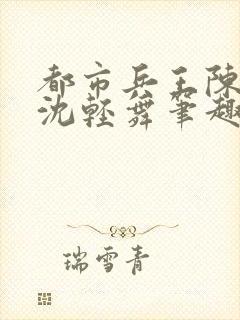 都市兵王陳
沈輕舞筆趣
瑞雪青